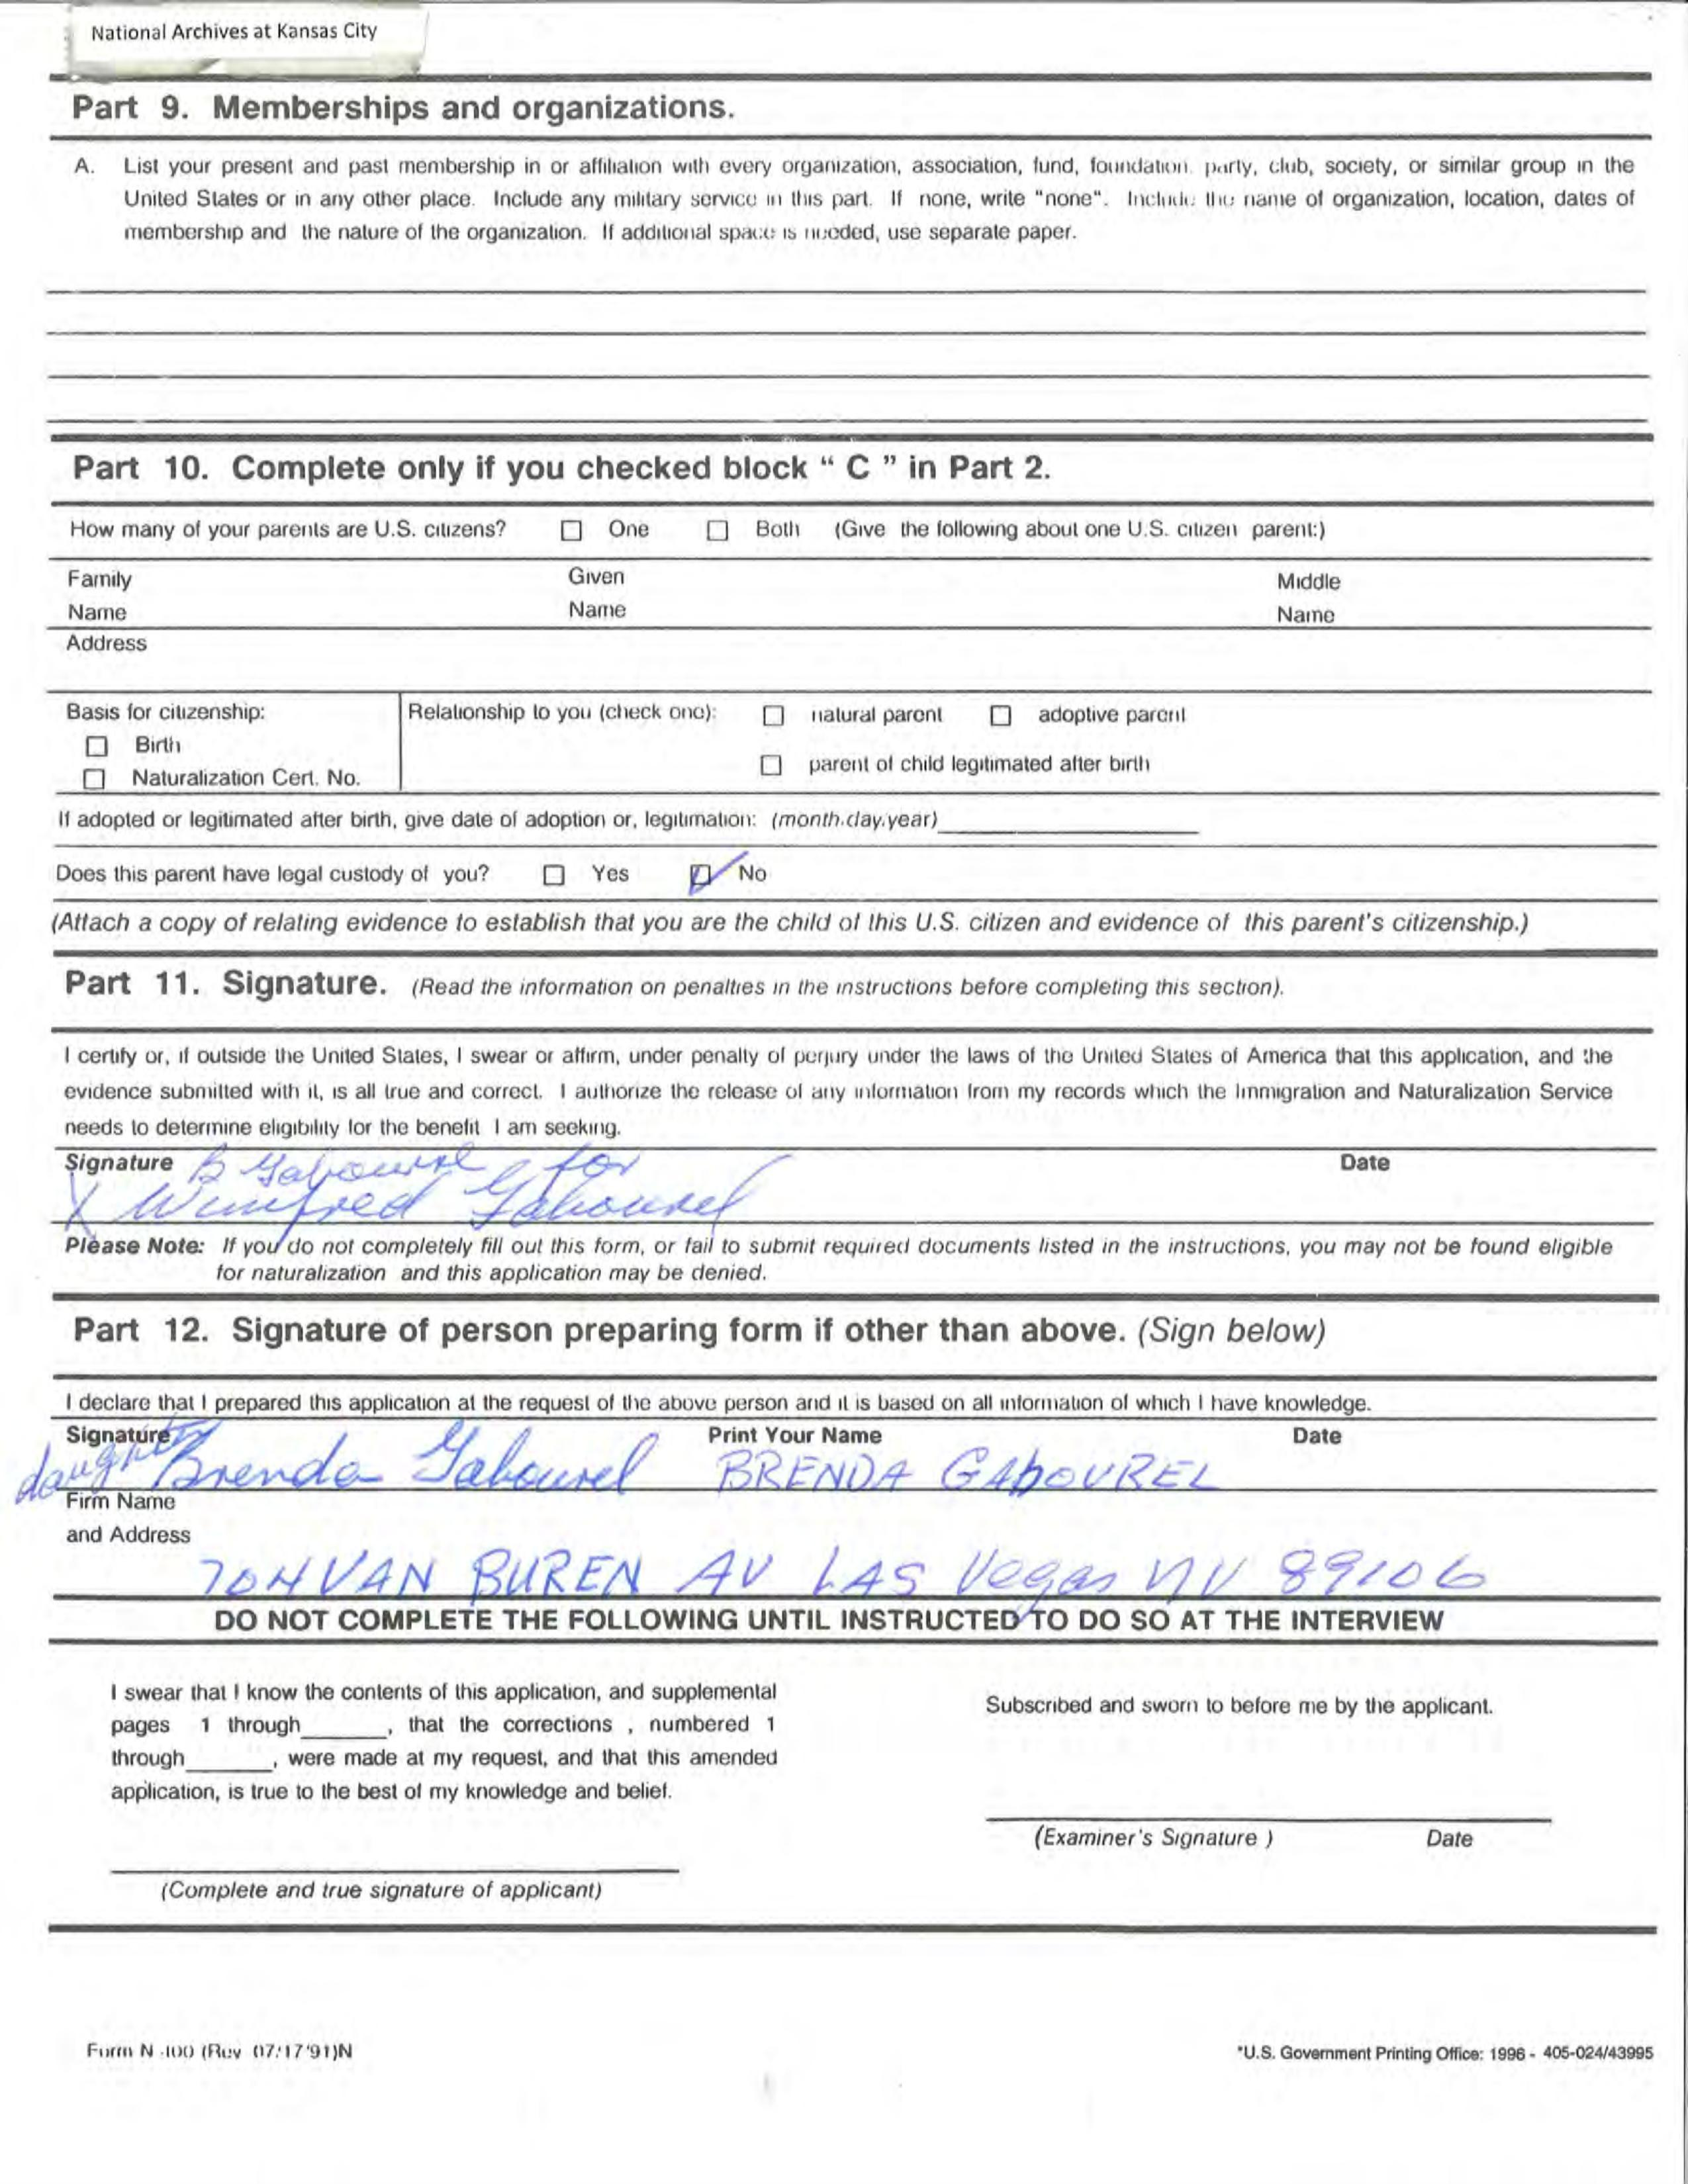 National Archives at Kansas City
Part 9. Memberships and organizations.
A. List your present and past membership in or affiliation with every organization, association, fund, foundation, party, club, society, or similar group in the
United States or in any other place. Include any military service in this part. If none, write "none". Include the name of organization, location, dates of
membership and the nature of the organization. If additional space is needed, use separate paper.
Part 10. Complete only if you checked block " C " in Part 2.
How many of your parents are U.S. citizens? ☐ One ☐ Both (Give the following about one U.S. citizen parent:)
Family Given Middle
Name Name Name
Address
Basis for citizenship: Relationship to you (check one): ☐ natural parent ☐ adoptive parent
☐ Birth
☐ parent of child legitimated after birth
☐ Naturalization Cert. No.
If adopted or legitimated after birth, give date of adoption or, legitimation: (month.day.year)
Does this parent have legal custody of you? ☐ Yes ☑ No
(Attach a copy of relating evidence to establish that you are the child of this U.S. citizen and evidence of this parent's citizenship.)
Part 11. Signature. (Read the information on penalties in the instructions before completing this section).
I certify or, if outside the United States, I swear or affirm, under penalty of perjury under the laws of the United States of America that this application, and the
evidence submitted with it, is all true and correct. I authorize the release of any information from my records which the Immigration and Naturalization Service
needs to determine eligibility for the benefit I am seeking.
Signature B Gabourel for Date
X Winifred Gabourel
Please Note: If you do not completely fill out this form, or fail to submit required documents listed in the instructions, you may not be found eligible
for naturalization and this application may be denied.
Part 12. Signature of person preparing form if other than above. (Sign below)
I declare that I prepared this application at the request of the above person and it is based on all information of which I have knowledge.
Signature Print Your Name Date
daughter Brenda Gabourel BRENDA GABOUREL
Firm Name
and Address
704 VAN BUREN AV LAS Vegas NV 89106
DO NOT COMPLETE THE FOLLOWING UNTIL INSTRUCTED TO DO SO AT THE INTERVIEW
I swear that I know the contents of this application, and supplemental
pages 1 through______, that the corrections , numbered 1
through______, were made at my request, and that this amended
application, is true to the best of my knowledge and belief.
Subscribed and sworn to before me by the applicant.
(Examiner's Signature ) Date
(Complete and true signature of applicant)
Form N-400 (Rev 07/17/91)N
*U.S. Government Printing Office: 1996 - 405-024/43995